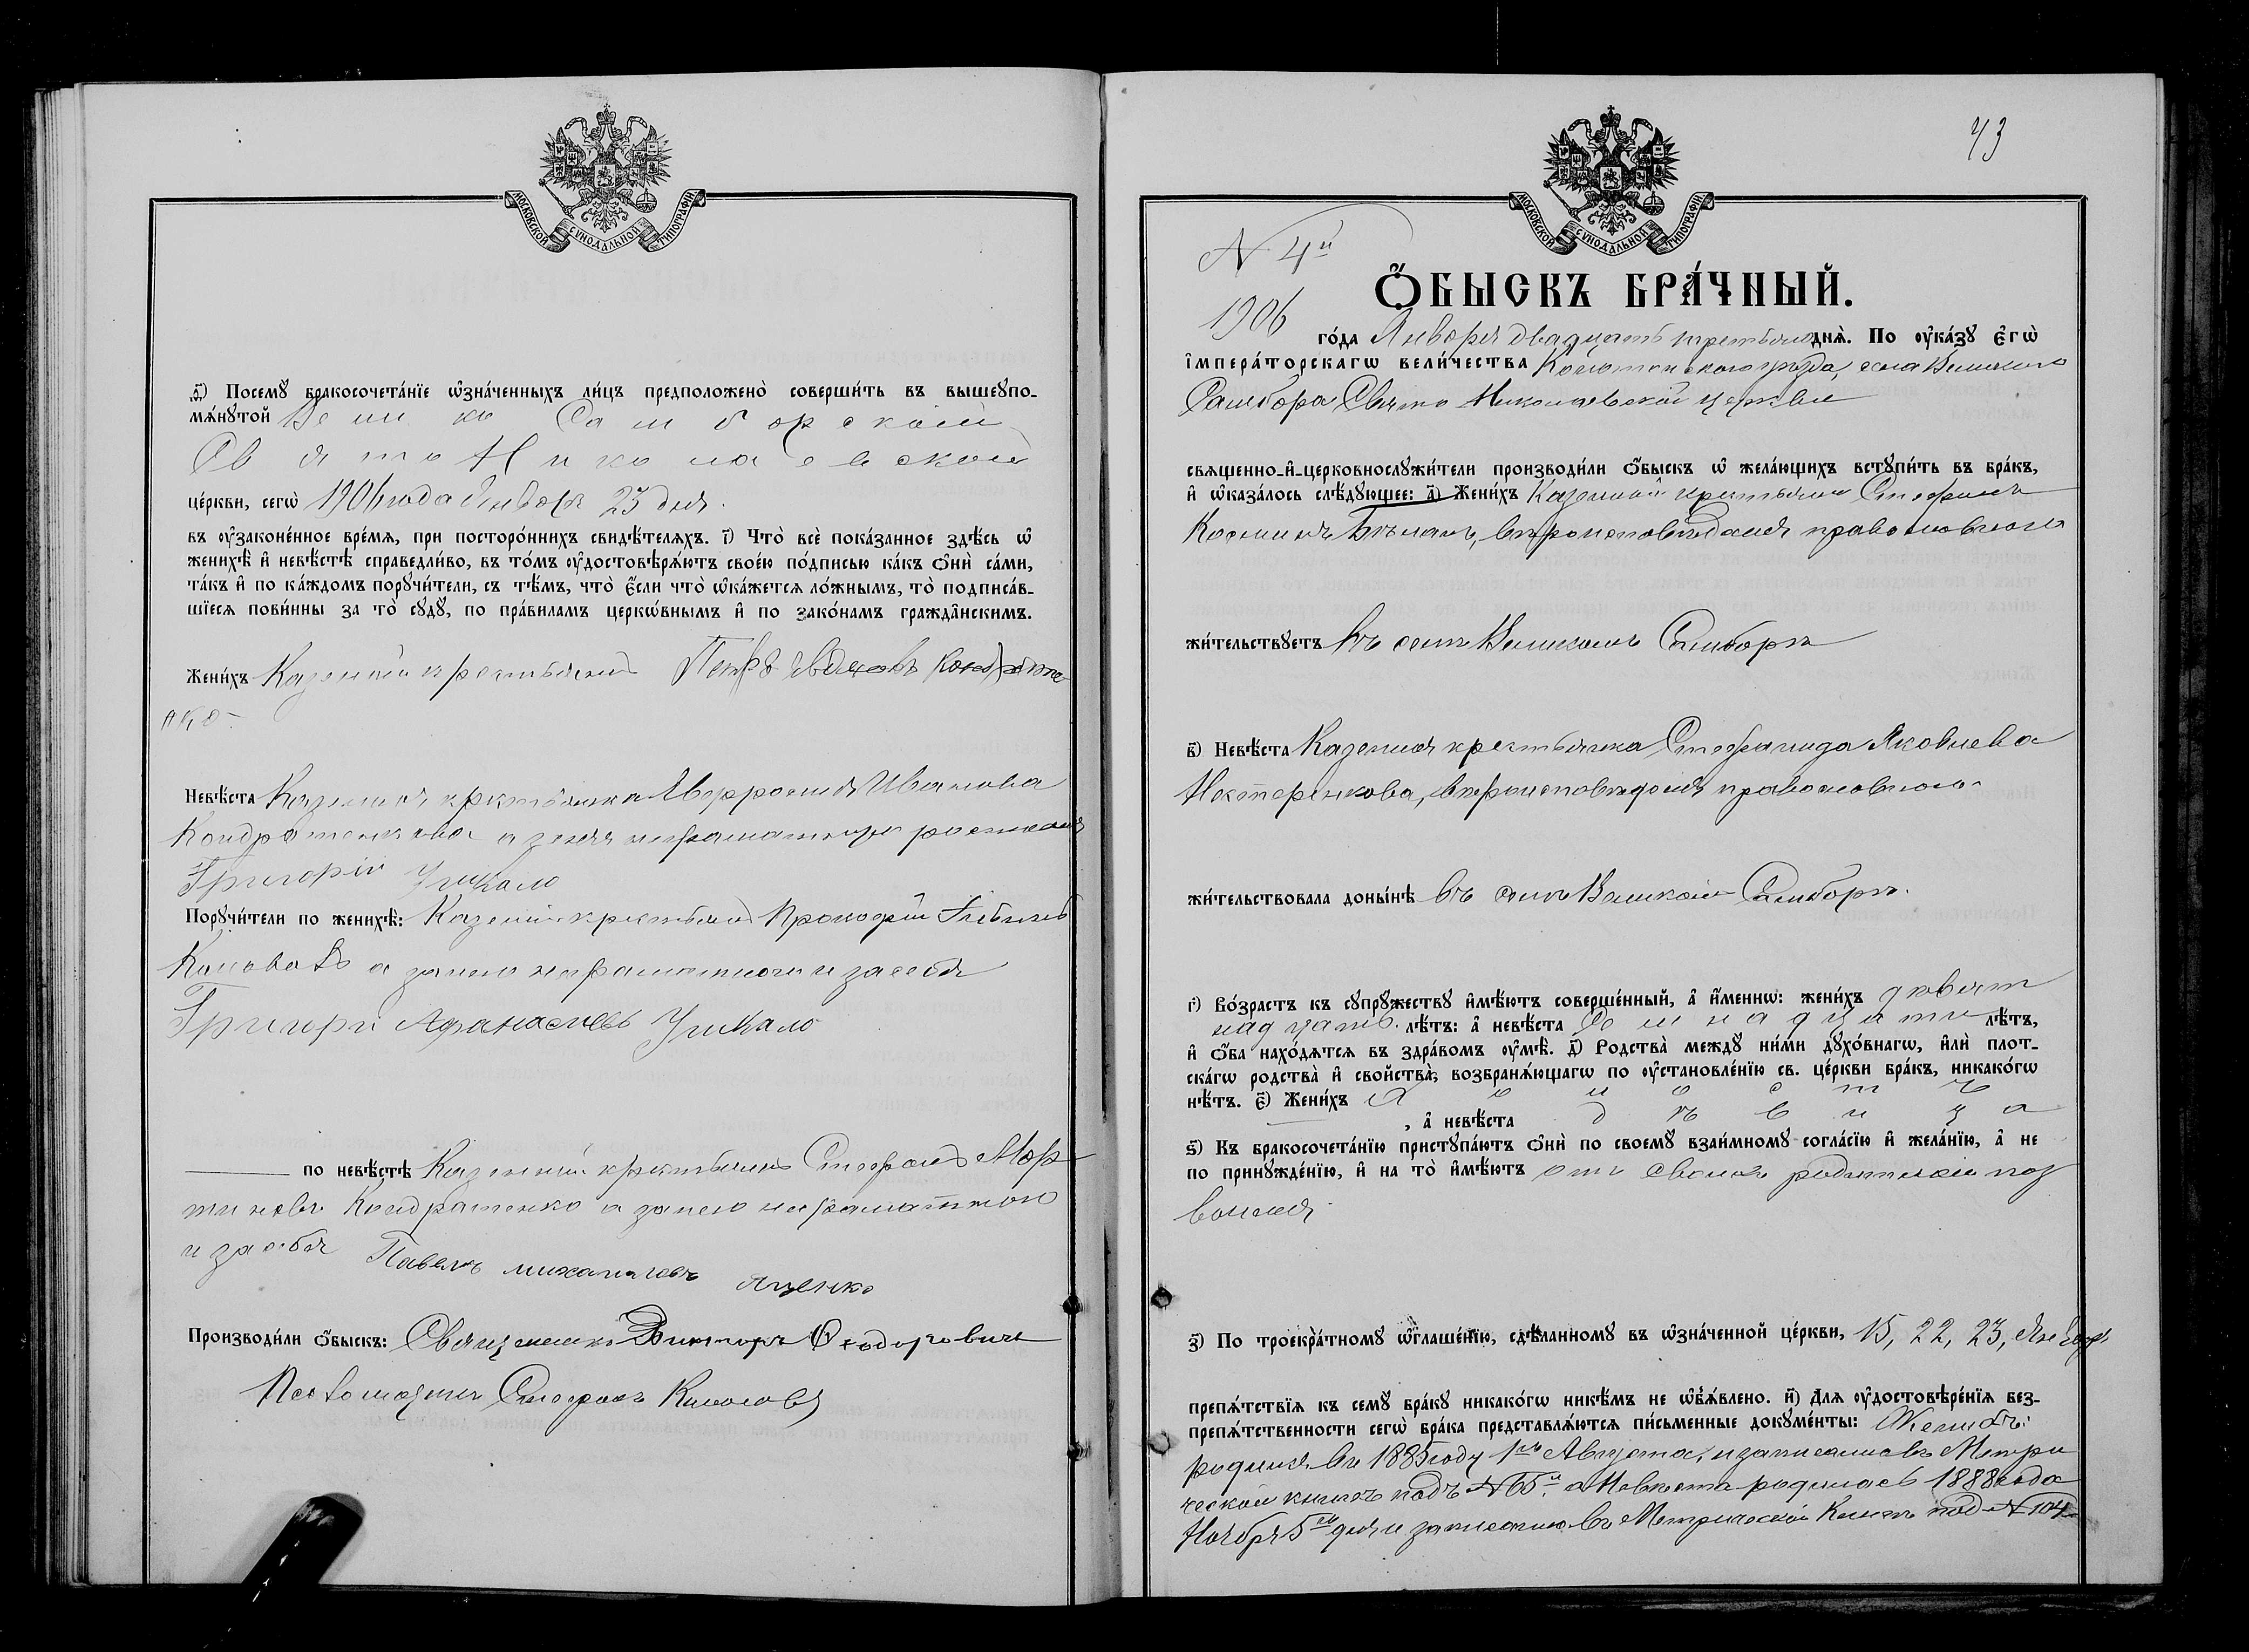 МОСКОВСКОЙ СѴНОДАЛЬНОЙ ТИПОГРАФІИ
ѳ҃) Посемꙋ бракосочета́нїе ѡ҆зна́ченныхъ ли́цъ предположено̀ соверши́ть въ вышеꙋпо-
мѧ́нꙋтой Велико Самборской
Свято Николаевской
це́ркви, сегѡ̀ 1906 года Января 23 дня.
въ ᲂу҆законе́нное вре́мѧ, при посторо́ннихъ свидѣ́телѧхъ. і҃) Что̀ всѐ пока́занное здѣ́сь ѡ҆
женихѣ̀ и҆ невѣ́стѣ справедли́во, въ то́мъ ᲂу҆достовѣрѧ́ютъ свое́ю по́дписью ка́къ ѻ҆нѝ са́ми,
та́къ и҆ по ка́ждомъ порꙋчи́тели, съ тѣ́мъ, что̀ є҆́сли что̀ ѡ҆ка́жетсѧ ло́жнымъ, то̀ подписа́в-
шїесѧ пови́нны за то̀ сꙋдꙋ̀, по пра́виламъ церкѡ́внымъ и҆ по зако́намъ гражда̑нскимъ.
Жени́хъ Казенный крестьянин Петръ Кондратен
ко
Невѣ́ста Казенная крестьянка Евфросинія Иванова
Кондратенкова а за нея неграмотную росписался
Григорій Учкало
Порꙋчи́тели по женихѣ̀: Казенный крестьянин Прокофій
Коновалъ а за него неграмотного и за себя
Григорий Афанасиевъ Учкало
по невѣ́стѣ Казенный крестьянинъ Стефанъ Мар
тиновъ Кондратенко а за него неграмотного
и за себя Павелъ михаиловъ Яценко
Производи́ли ѻ҆́быскъ: Священникъ Викторъ Ѳеодоровичъ
Псаломщикъ Стефанъ
43
МОСКОВСКОЙ СѴНОДАЛЬНОЙ ТИПОГРАФІИ
N 4й
Ѻ҆́БЫСКЪ БРА́ЧНЫЙ.
1906 го́да Января двадцать третьяго днѧ̀. По ᲂу҆ка́зꙋ є҆гѡ̀
і҆мпера́торскагѡ вели́чества Конотопского уѣзда, села Великого
Самбора Свято Николаевской церкви
свѧще́нно-и҆-церковнослꙋжи́тели производи́ли ѻ҆́быскъ ѡ҆ жела́ющихъ встꙋпи́ть въ бра́къ,
и҆ ѡ҆каза́лось слѣ́дꙋющее: а҃) Жени́хъ Казенный крестьянин Стефанъ
Косминъ вѣроисповѣдания православного
жи́тельствꙋетъ въ селѣ Великомъ Самборѣ
в҃) Невѣ́ста Казенная крестьянка Стефанида Яковлева
Нестеренкова, вѣроисповѣдания православного
жи́тельствовала доны́нѣ въ селѣ Великом Самборѣ.
г҃) Во́зрастъ къ сꙋпрꙋ́жествꙋ и҆мѣ́ютъ соверше́нный, а҆ и҆́меннѡ: жени́хъ девят
надцать лѣ́тъ: а҆ невѣ́ста Семнадцати лѣ́тъ,
и҆ ѻ҆́ба нахо́дѧтсѧ въ здра́вомъ ᲂу҆мѣ̀. д҃) Родства̀ междꙋ̀ ни́ми дꙋхо́внагѡ, и҆лѝ плот-
ска́гѡ родства̀ и҆ сво́йства̀, возбранѧ́ющагѡ по ᲂу҆становле́нїю св. це́ркви бра́къ, никако́гѡ
нѣ́тъ. є҃) Жени́хъ Холостъ
, а҆ невѣ́ста дѣвица
ѕ҃) Къ бракосочета́нїю пристꙋпа́ютъ ѻ҆нѝ по своемꙋ̀ взаи́мномꙋ согла́сїю и҆ жела́нїю, а҆ не
по принꙋжде́нїю, и҆ на то̀ и҆мѣ́ютъ отъ своихъ родителей поз
воления
з҃) По троекра́тномꙋ ѡ҆глаше́нїю, сдѣ́ланномꙋ въ ѡ҆зна́ченной це́ркви, 15, 22, 23, Января
препѧ́тствїѧ къ семꙋ̀ бра́кꙋ никако́гѡ никѣ́мъ не ѡ҆б̾ѧ́влено. и҃) Длѧ ᲂу҆достовѣре́нїѧ без-
препѧ́тственности сегѡ̀ бра́ка представлѧ́ютсѧ пи́сьменные докꙋме́нты: Женихъ:
родился въ 1885 году 1го Августа, и записанъ въ Метри
ческой книгѣ подъ N 65м. а Невѣста родилась 1888 года
Ноября 5го дня и записана въ Метрической Книгѣ под N 104